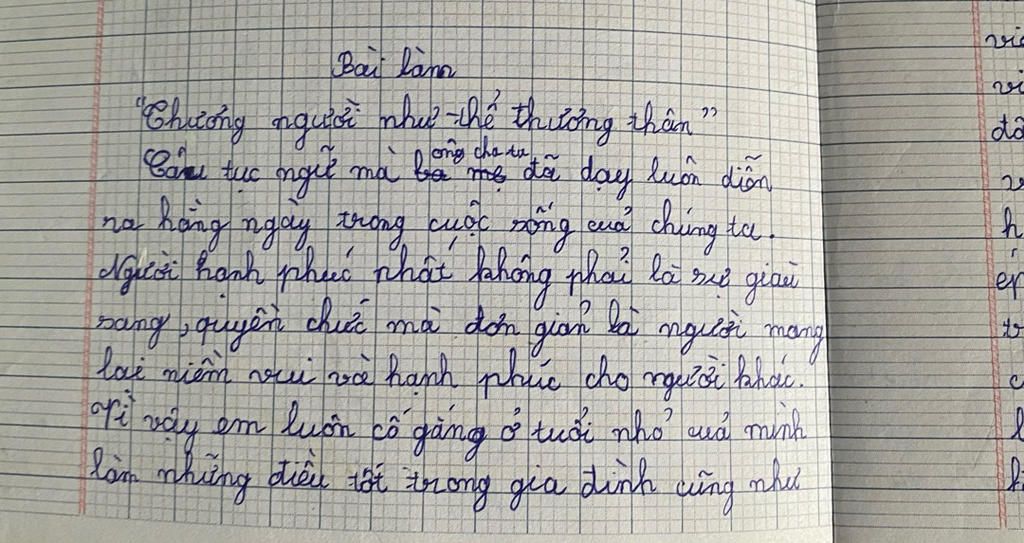 Bài làm
"Thương người như thể thương thân"
Câu tục ngữ mà ông cha ta đã dạy luôn diễn
ra hằng ngày trong cuộc sống của chúng ta.
Người hạnh phúc nhất không phải là sự giàu
sang, quyền chức mà đơn giản là người mang
lại niềm vui và hạnh phúc cho người khác.
Vì vậy em luôn cố gắng ở tuổi nhỏ của mình
làm những điều tốt trong gia đình cũng như